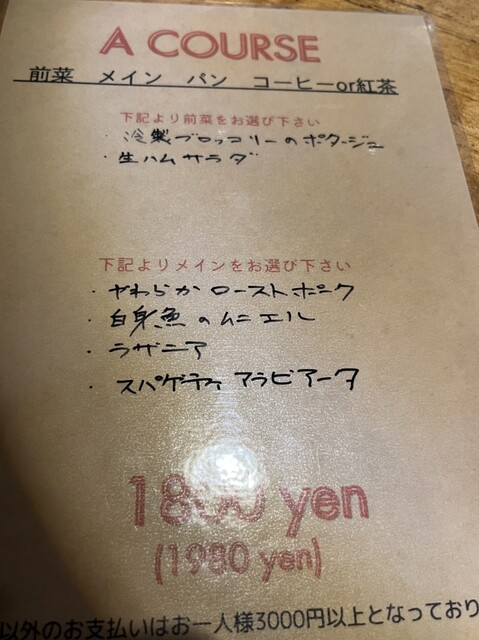 A COURSE
前菜 メイン パン コーヒーor紅茶
下記より前菜をお選び下さい
・冷製ブロッコリーのポタージュ
・生ハムサラダ
下記よりメインをお選び下さい
・やわらかローストポーク
・白身魚のムニエル
・ラザニア
・スパゲティ アラビアータ
1800 yen
(1980 yen)
以外のお支払いはお一人様3000円以上となっており